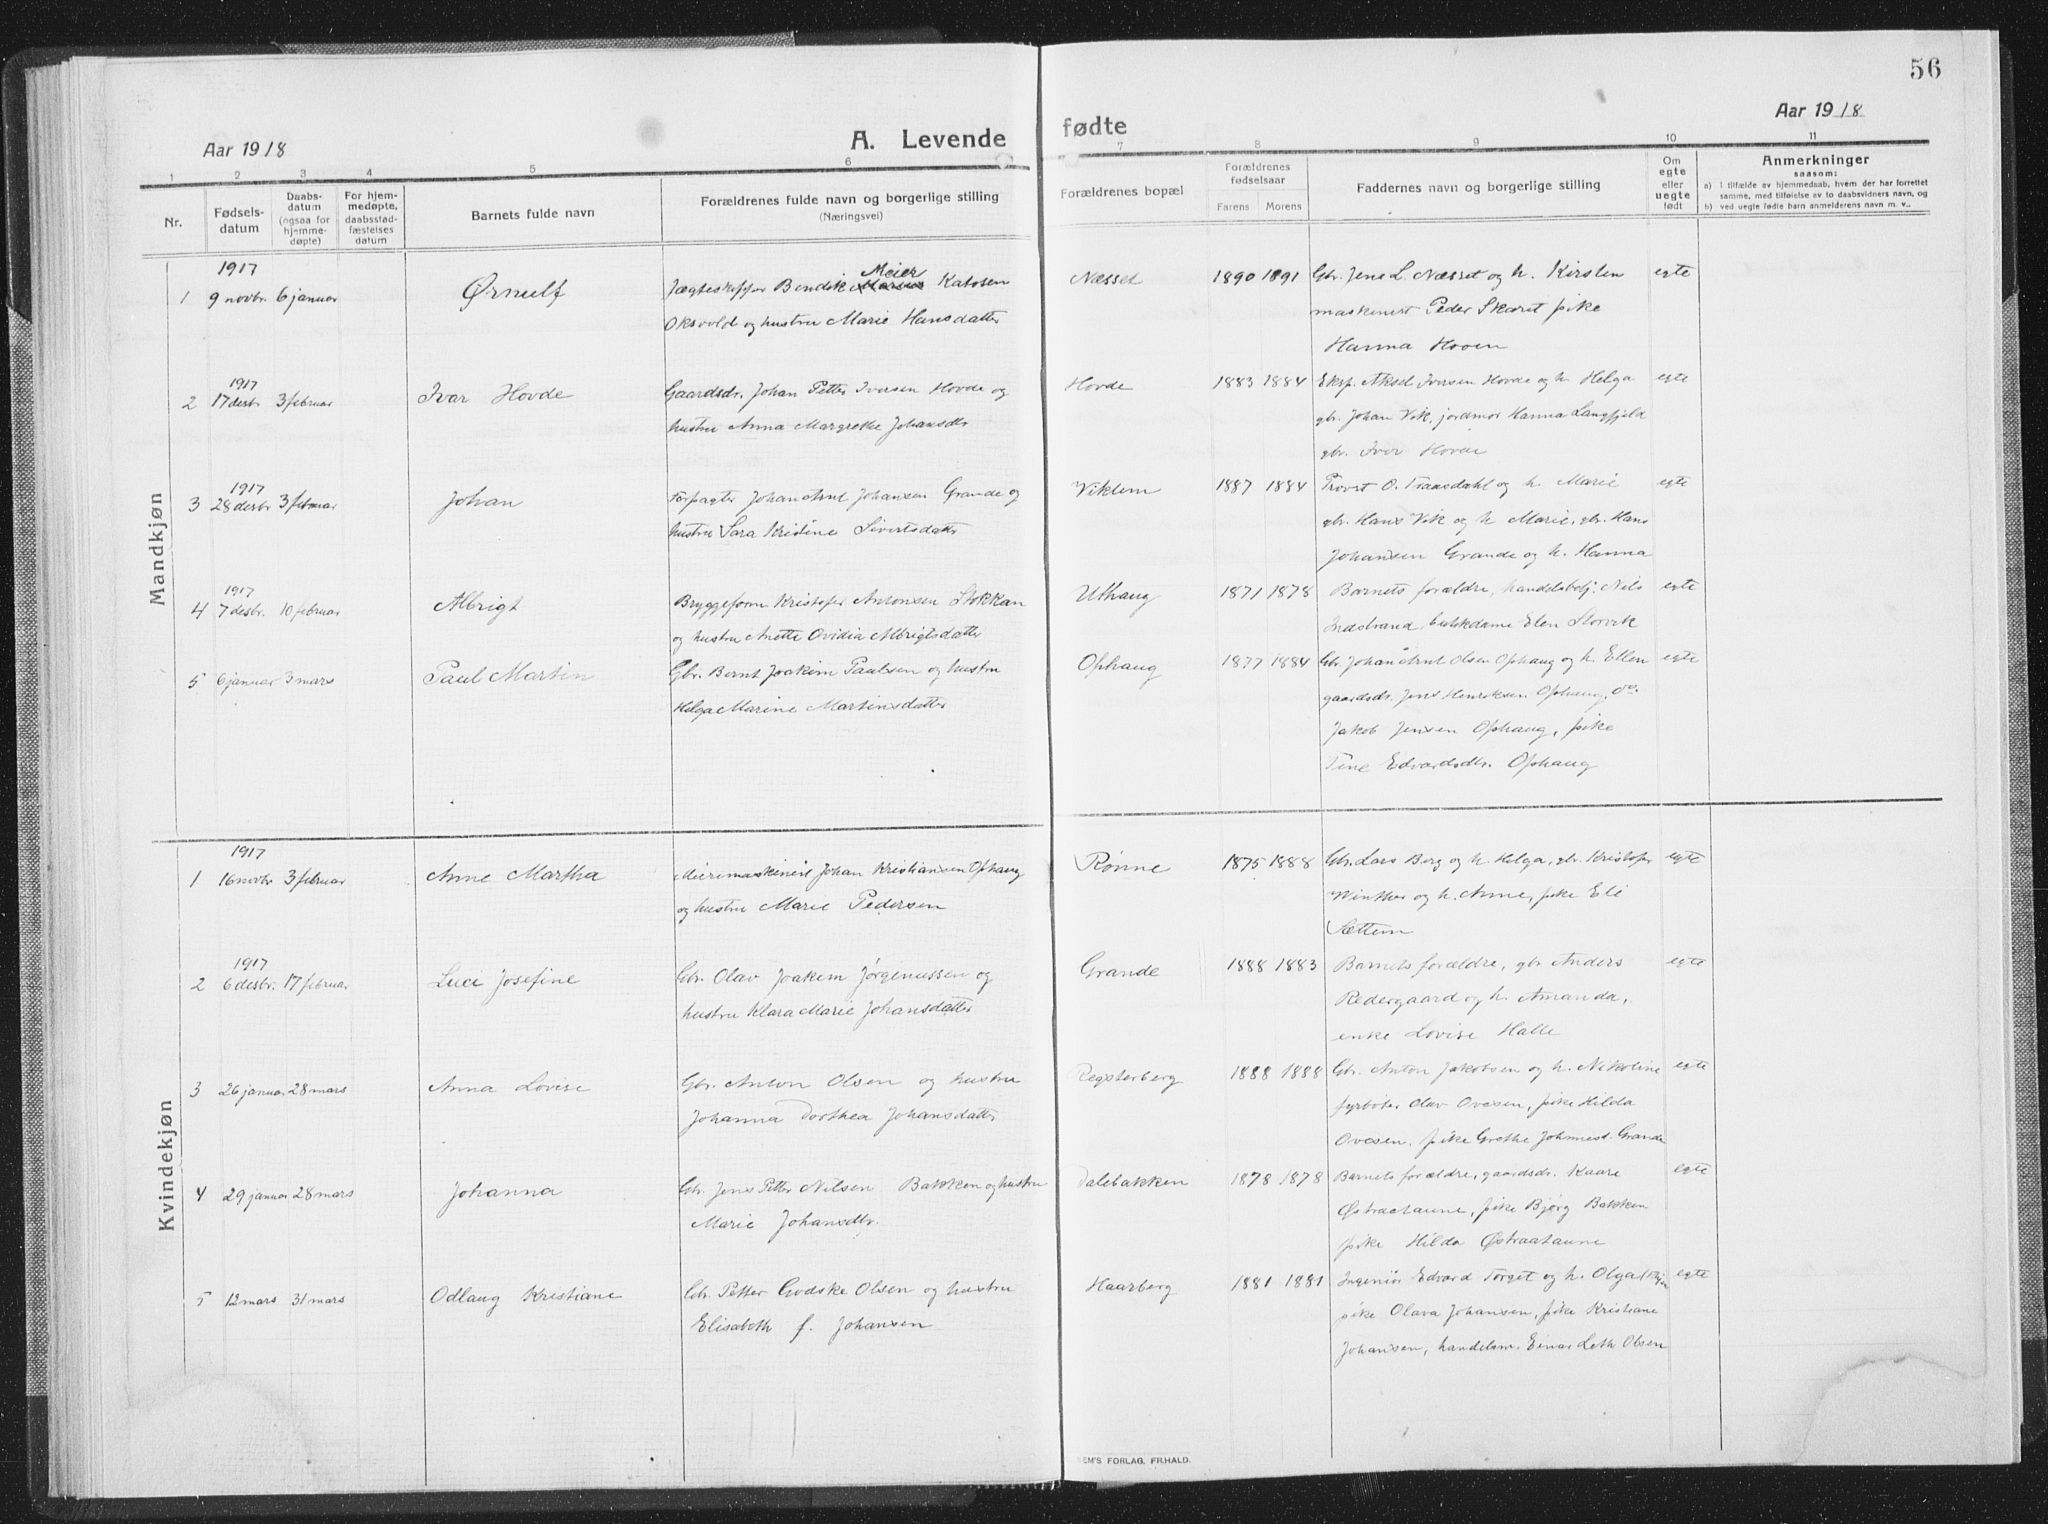 56
Aar 1918
A. Levende
fødte
Aar 1918
1 2 3 4 5 6 7 8 9 10 11
Nr.
Fødsels-
datum
Daabs-
datum
(ogsaa for
hjemme-
døpte)
For hjem-
medøpte,
daabsstad-
fæstelses
datum
Barnets fulde navn
Forældrenes fulde navn og borgerlige stilling
(Næringsvei)
Forældrenes bopæl
Forældrenes
fødselsaar
Farens Morens
Faddernes navn og borgerlige stilling
Om
egte
eller
uegte
født
Anmerkninger
saasom:
a) I tilfælde av hjemmedaab, hvem der har forrettet
samme, med tilføielse av to daabsvidners navn, og
b) ved uegte fødte barn anmelderens navn m. v..
Mandkjøn
1917
1 9 novbr. 6 januar
Ørnulf
Meier
Jægteskipper Bendik Marius Katosen
Oksvold og hustru Marie Hansdatter
Næsset
1890 1891
Gbr. Jens L. Næsset og h. Kirsten
maskinist Peder Skaret pike
Hanna Hoven
egte
1917
2 17 desbr. 3 februar
Ivar Hovde
Gaardsdr. Johan Petter Iversen Hovde og
hustru Anna Margrethe Johansdtr
Hovde
1883 1884
Eksp. Aksel Iversen Hovde og h. Helga
gbr. Johan Vik, jordmor Hanna Langfjeld
gbr. Iver Hovde
egte
1917
3 28 desbr 3 februar
Johan
Forpagter Johan Arnt Johansen Grande og
hustru Sara Kristine Sivertsdatter
Viklem
1887 1884
Provst O. Traasdahl og h. Marie
gbr. Hans Vik og h Marie, gbr. Hans
Johansen Grande og h. Hanna
egte
1917
4 7 desbr. 10 februar
Albrigt
Bryggeform Kristofer Antonsen Stokkan
og hustru Anette Ovidia Albrigtsdatter
Uthaug
1871 1878
Barnets forældre, handelsbetj. Nils
Indstrand, butikdame Elen Storvik
egte
5 6 januar 3 mars
Paul Martin
Gbr. Bernt Joakim Paulsen og hustru
Helga Marine Martinsdatter
Ophaug
1877 1884
Gbr. Johan Arnt Olsen Ophaug og h. Ellen
gaardsdr. Jens Henriksen Ophaug, do.
Jakob Jensen Ophaug, pike
Tine Edvardsdtr. Ophaug
egte
Kvindekjøn
1917
1 16 novbr 3 februar
Anne Martha
Meierimaskinist Johan Kristiansen Ophaug
og hustru Marie Pedersen
Rønne
1875 1888
Gbr. Lars Berg og h. Helga, gbr. Kristofer
Winther og h. Anne, pike Eli
Sættem
egte
1917
2 6 desbr. 17 februar
Luci Josefine
Gbr. Olav Joakim Jørgenussen og
hustru Klara Marie Johansdatter
Grande
1888 1883
Barnets forældre, gbr Anders
Redergaard og h. Amanda,
enke Lovise Halle
egte
3 26 januar 28 mars
Anna Lovise
Gbr. Anton Olsen og hustru
Johanna Dorthea Johansdatter
Regsterberg
1888 1888
Gbr. Anton Jakobsen og h. Nikoline
fyrbøter Olav Ovesen, pike Hilda
Ovesen, pike Grethe Johnnesd. Grande
egte
4 29 januar 28 mars
Johanna
Gbr. Jens Petter Nilsen Bakken og hustru
Marie Johansdtr.
Dalebakken
1878 1878
Barnets forældre, gaardsdr. Kaare
Østraataune, pike Bjørg Bakken
pike Hilda Østraataune
egte
5 12 mars 31 mars
Odlaug Kristiane
Gbr. Petter Godske Olsen og hustru
Elisabeth f. Johansen
Haarberg
1881 1881
Ingeniør Edvard Torget og h. Olga
pike Olava Johansen, pike Kristiane
Johansen, handelsm. Einar Leth Olsen
egte
EM'S FORLAG, FR.HALD.